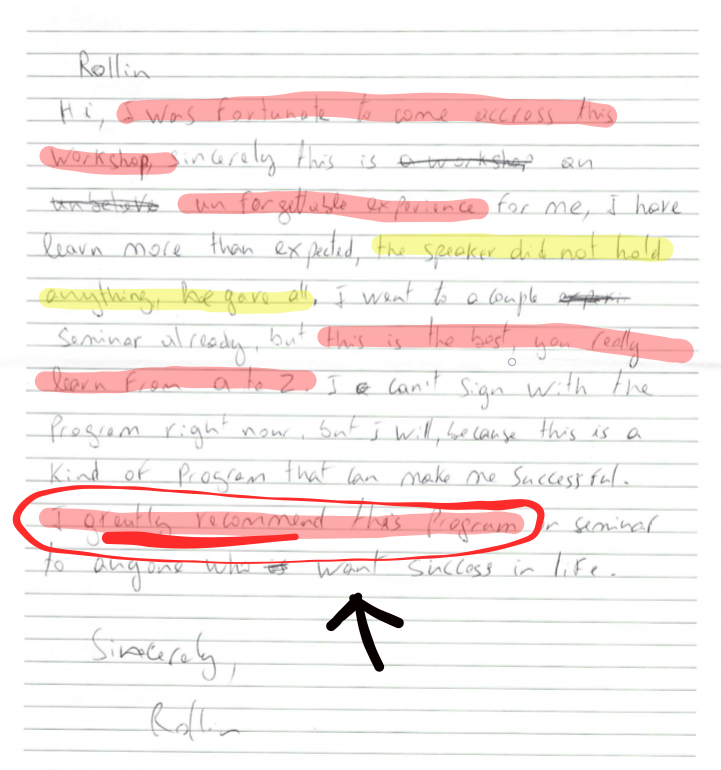 Rollin
Hi, I was fortunate to come accross this
workshop, sincerely this is a workshop an
unbeleve un forgettable experience for me, I have
learn more than expected, the speaker did not hold
anything, he gave all. I went to a couple experi
seminar already, but this is the best, you really
learn from a to Z. I can't sign with the
Program right now, but I will, because this is a
Kind of Program that can make me Successful.
I greatly recommend this Program or seminar
to anyone who is want success in life.
Sincerely,
Rollin